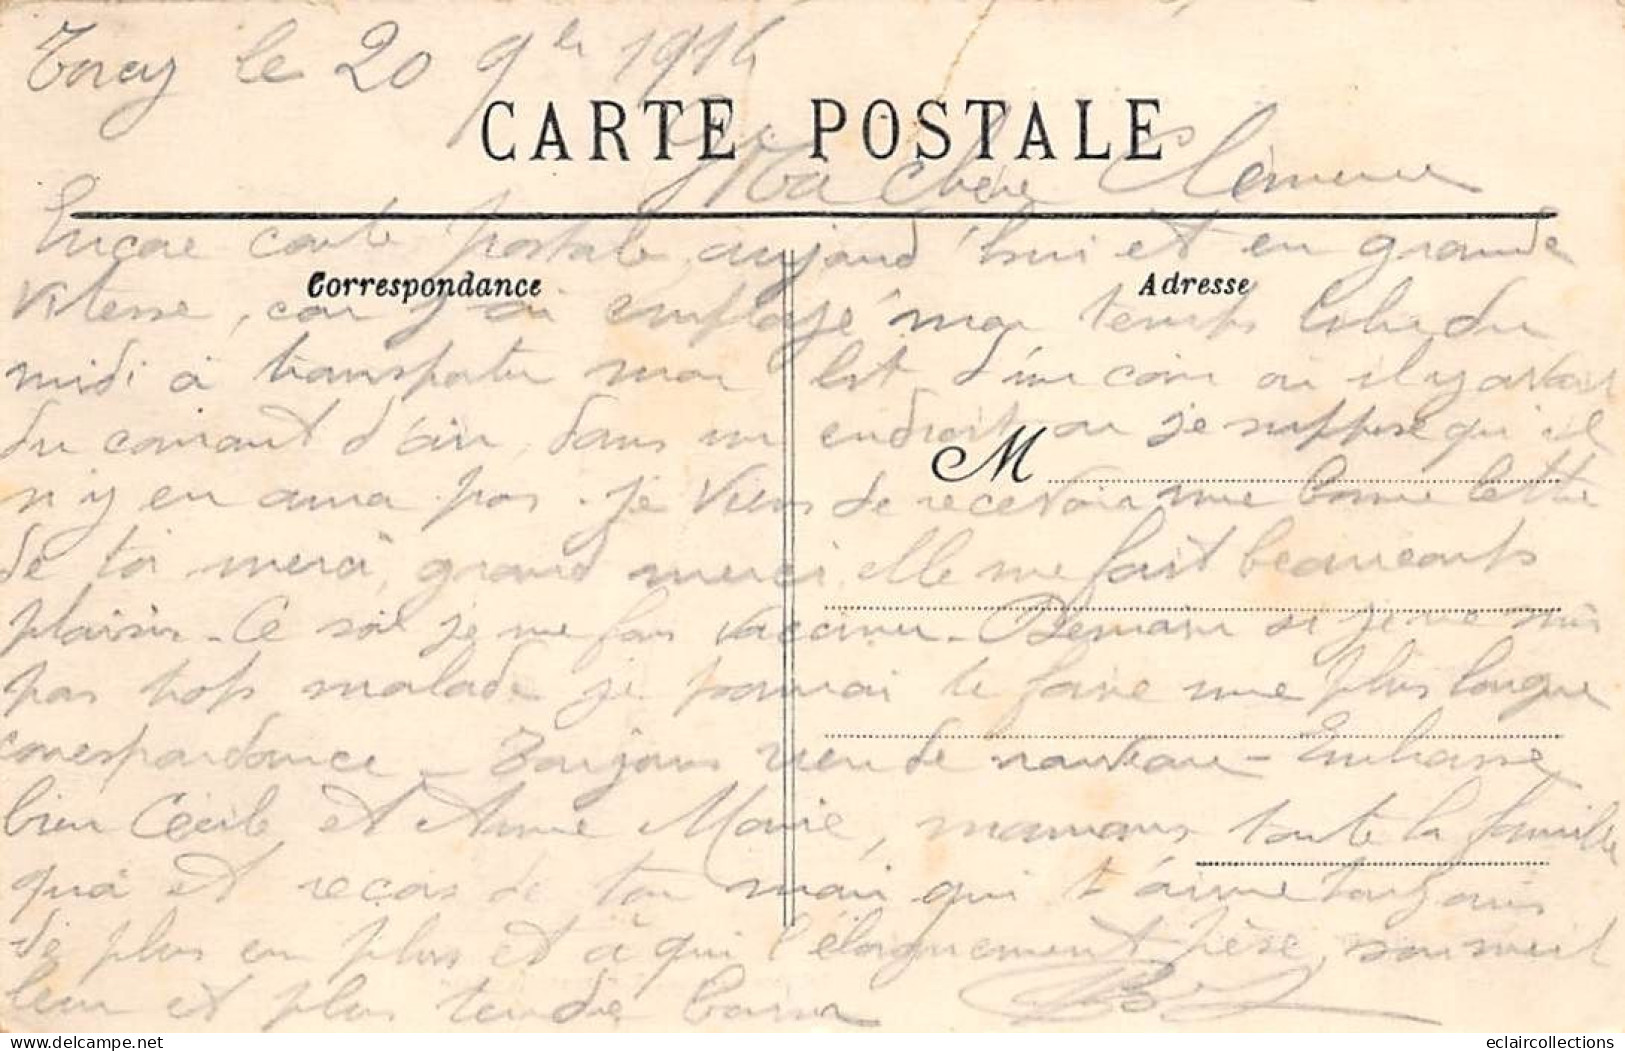 Torcy le 20 9bre 1914
CARTE POSTALE
Ma chère Clémence
Encore carte postale aujourd'hui et en grande
Correspondance
Adresse
vitesse, car j'ai employé mon temps du
midi à transporter mon lit d'un coin où il y avait
du courant d'air dans un endroit ou je suppose qu'il
M
n'y en aura pas. Je viens de recevoir une bonne lettre
de toi merci, grand merci, elle me fait beaucoups
plaisir - Ce soir je me fais vacciner - Demain si je ne suis
pas trops malade je pourrai te faire une plus longue
correspondance - Toujours rien de nouveau - Embrasse
bien Cécile et Anne Marie, mamans toute la famille
quoi et reçois de ton mari qui t'aime toujours
de plus en plus et à qui l'éloignement pèse, son meil
leur et plus tendre baiser
eclaircollections